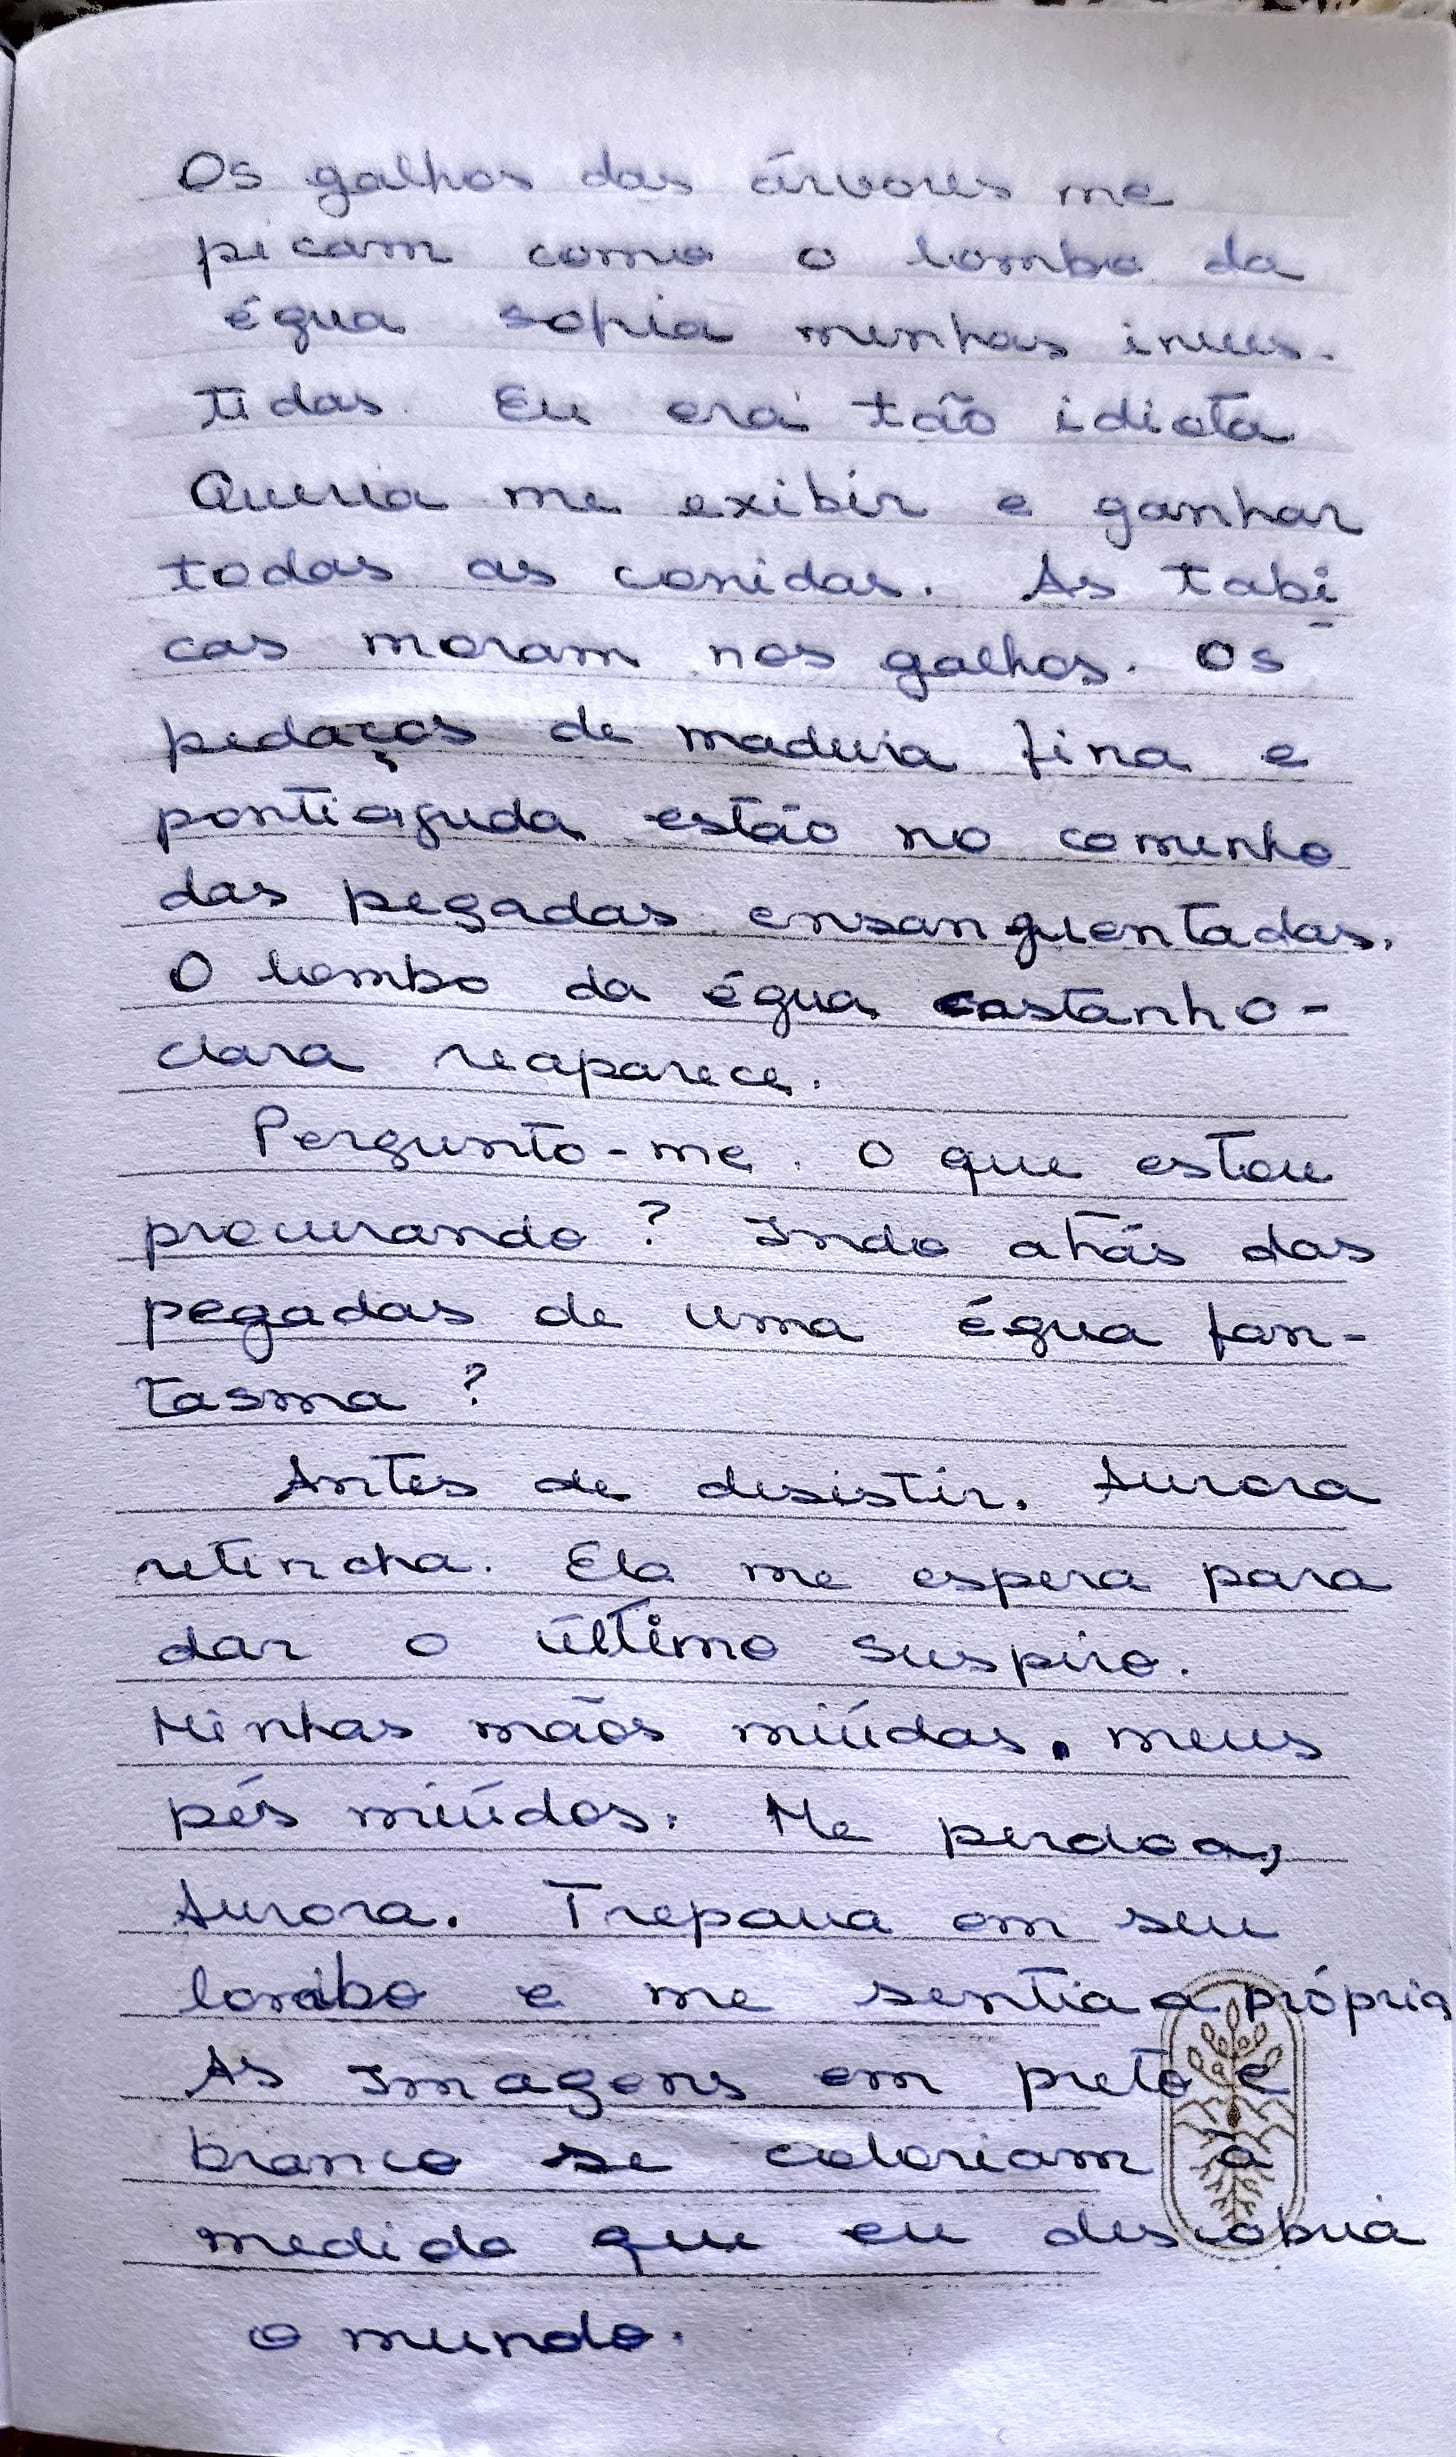 Os galhos das árvores me
picam como o lombo da
égua sofria minhas inves-
tidas. Eu era tão idiota
Queria me exibir e ganhar
todas as corridas. As tabi
cas moram nos galhos. Os
pedaços de madeira fina e
pontiaguda estão no caminho
das pegadas ensanguentadas.
O lombo da égua castanho-
clara reaparece.
Pergunto-me. O que estou
procurando? Indo atrás das
pegadas de uma égua fan-
tasma?
Antes de desistir. Aurora
retincha. Ela me espera para
dar o último suspiro.
Minhas mãos miúdas. meus
pés miúdos. Me perdoa,
Aurora. Trepava em seu
lombo e me sentia a própria
As Imagens em preto e
branco se coloriam à
medida que eu descobria
o mundo.